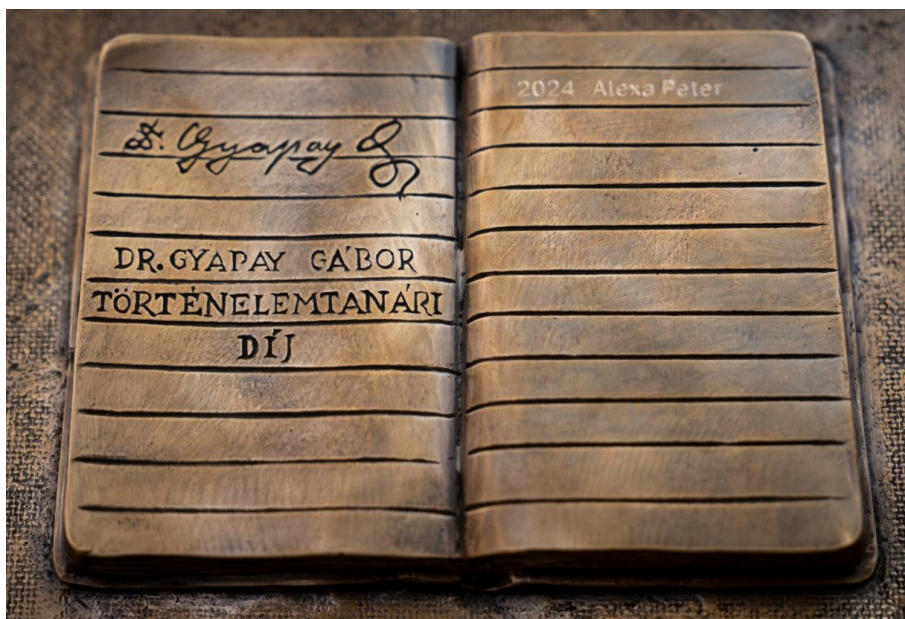 Dr. Gyapay G
DR. GYAPAY GÁBOR
TÖRTÉNELEMTANÁRI
DÍJ
2024 Alexa Péter